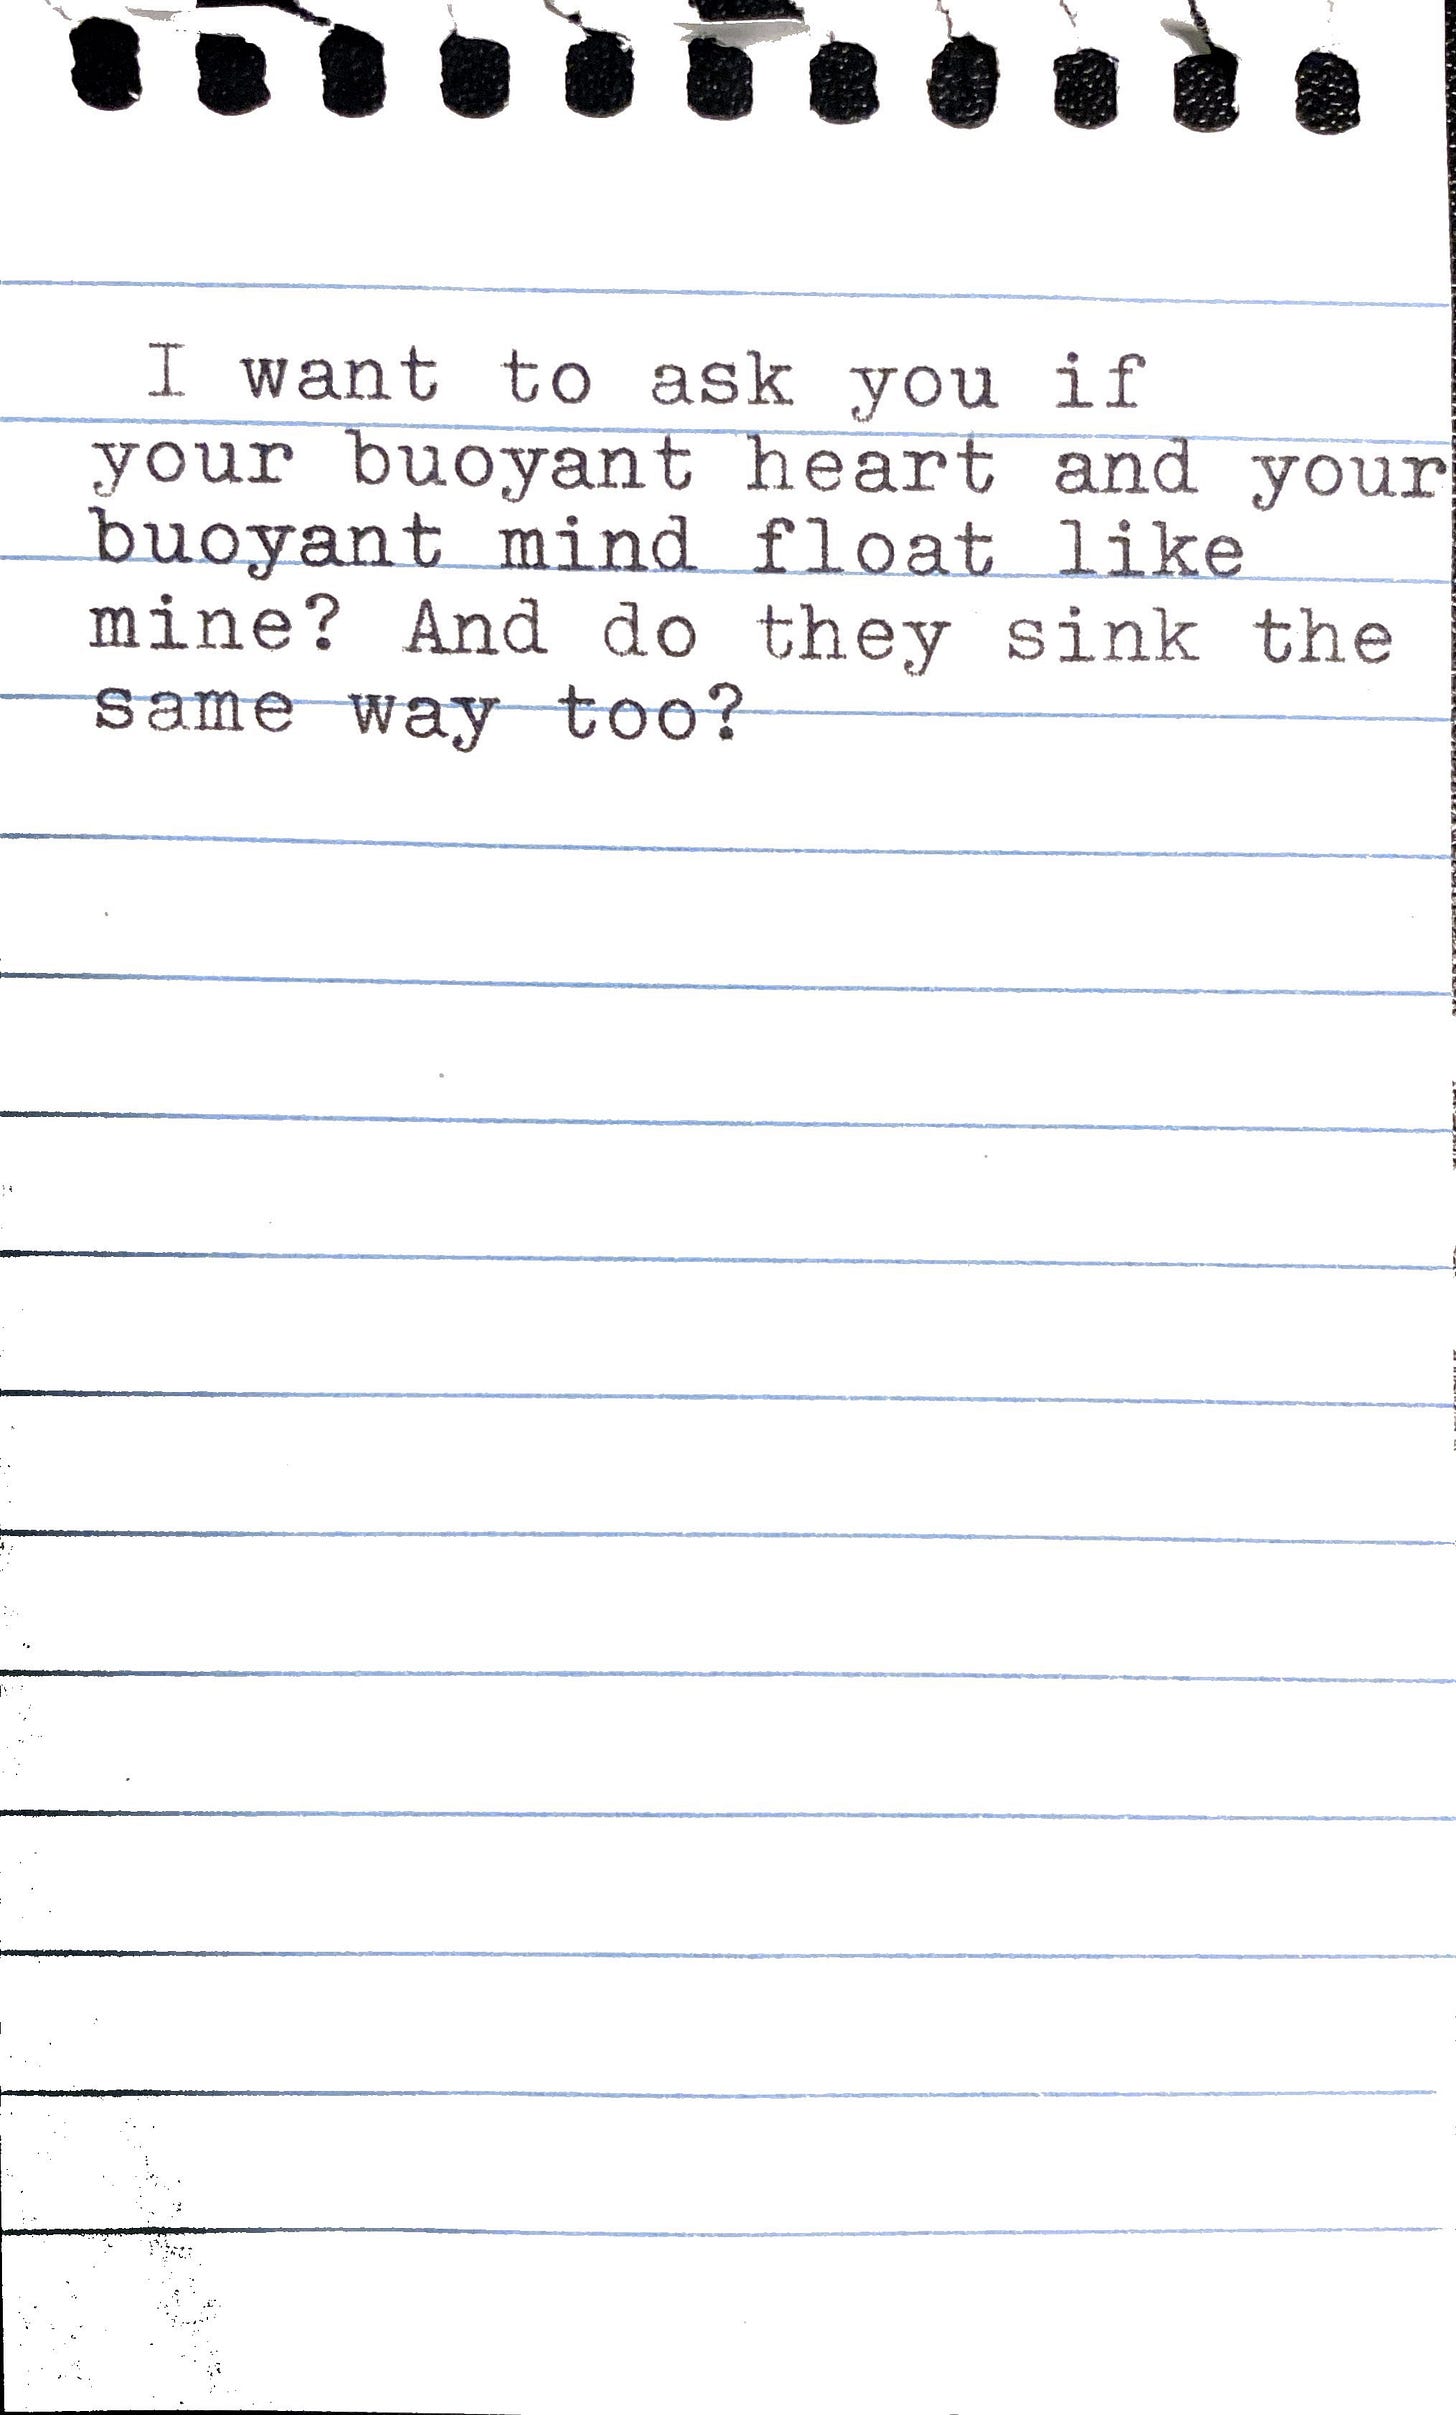 I want to ask you if
your buoyant heart and your
buoyant mind float like
mine? And do they sink the
same way too?